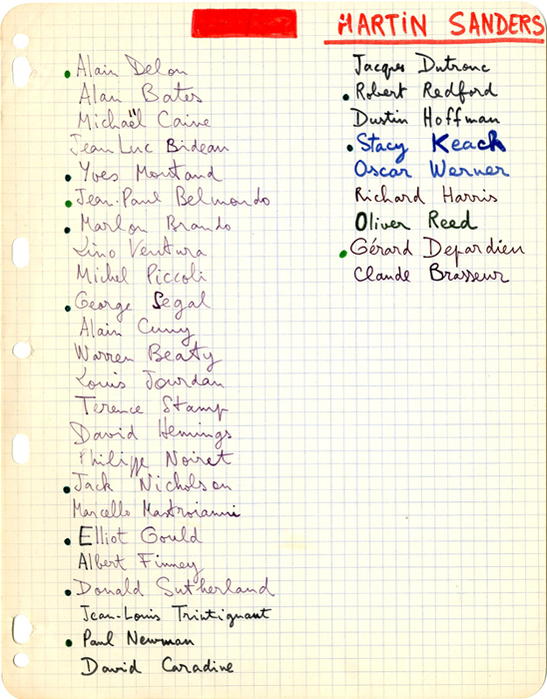 MARTIN SANDERS
Alain Delon
Alan Bates
Michaël Caine
Jean Luc Bideau
Yves Montand
Jean-Paul Belmondo
Marlon Brando
Lino Ventura
Michel Piccoli
George Segal
Alain Cuny
Warren Beaty
Louis Jourdan
Terence Stamp
David Hemings
Philippe Noiret
Jack Nicholson
Marcello Mastroianni
Elliot Gould
Albert Finney
Donald Sutherland
Jean-Louis Trintignant
Paul Newman
David Caradine
Jacques Dutronc
Robert Redford
Dustin Hoffman
Stacy Keach
Oscar Werner
Richard Harris
Oliver Reed
Gérard Depardieu
Claude Brasseur